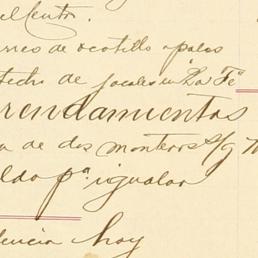 el Centro.
rreo de ocotillo o palos
techo de jacales en "La Fé"
rendamientos
a de dos monteros s/g
ldo pª. igualar
lencia hoy